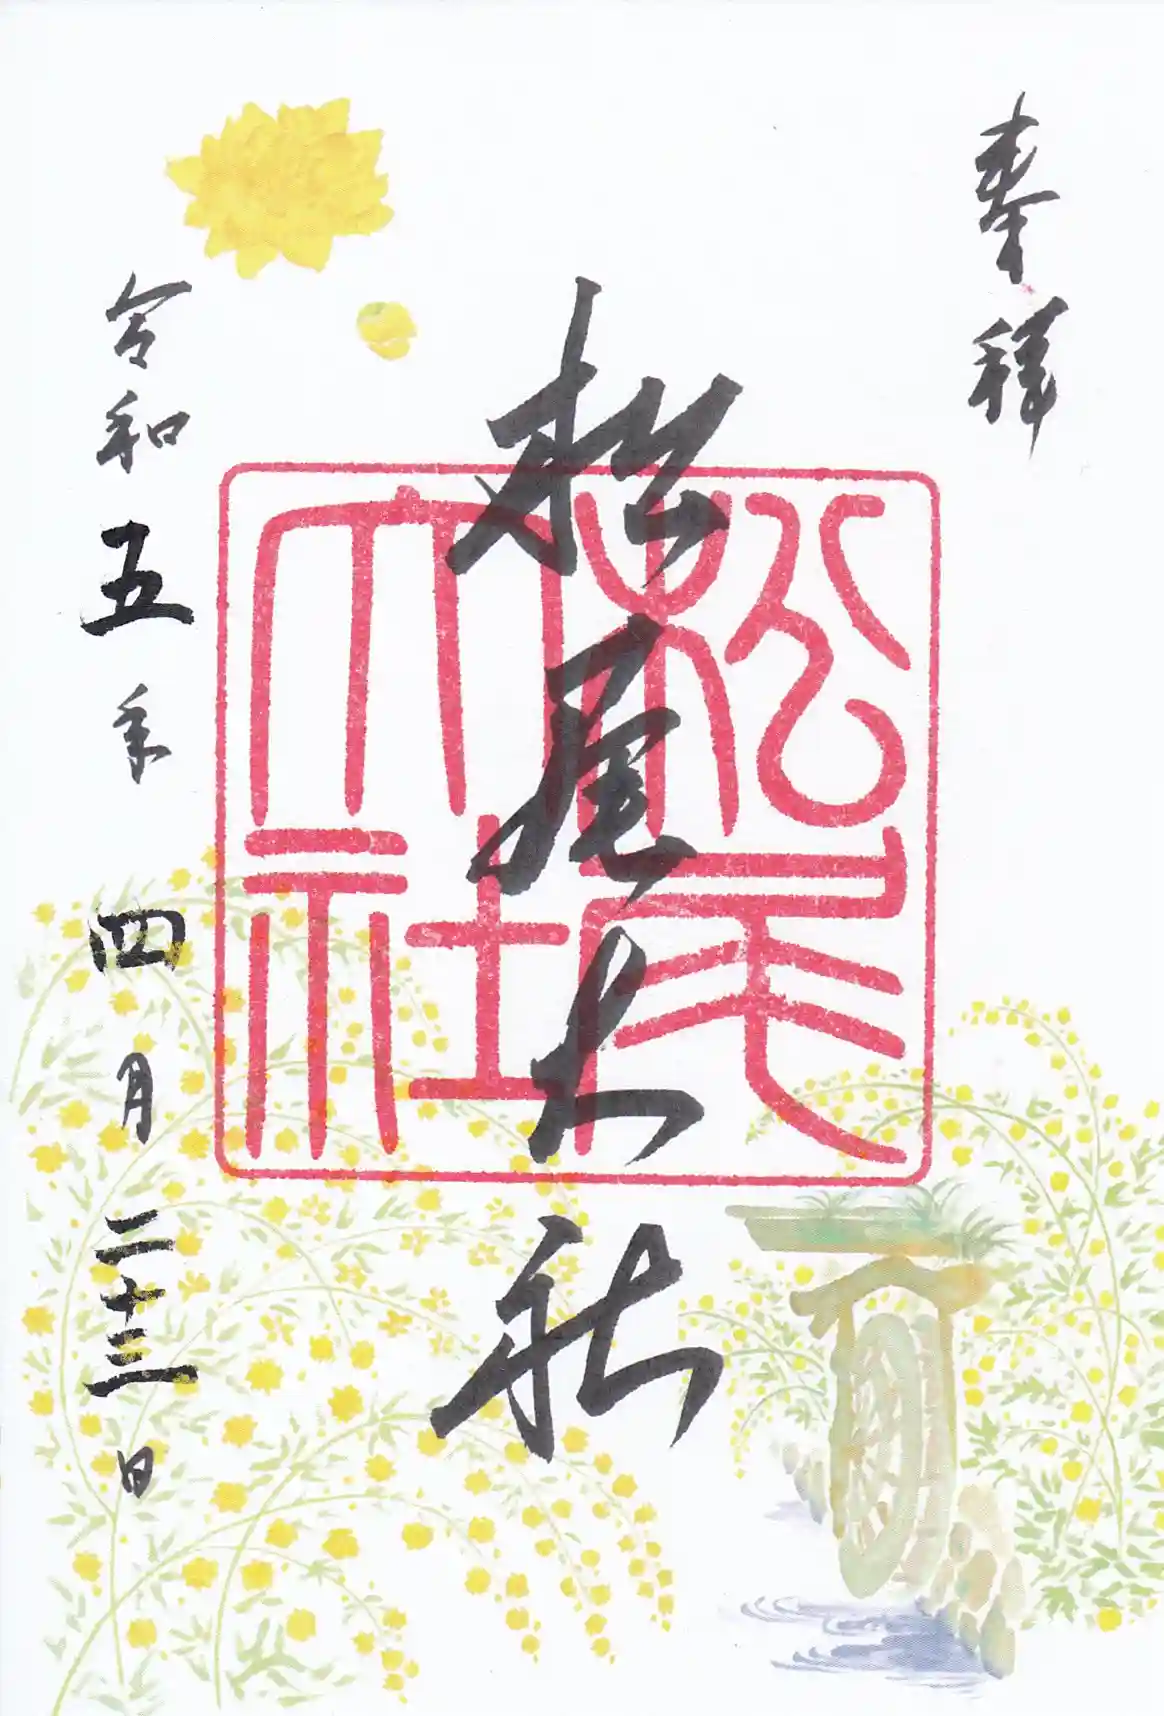 奉拝
松尾大社
松尾大社
令和五年四月二十三日